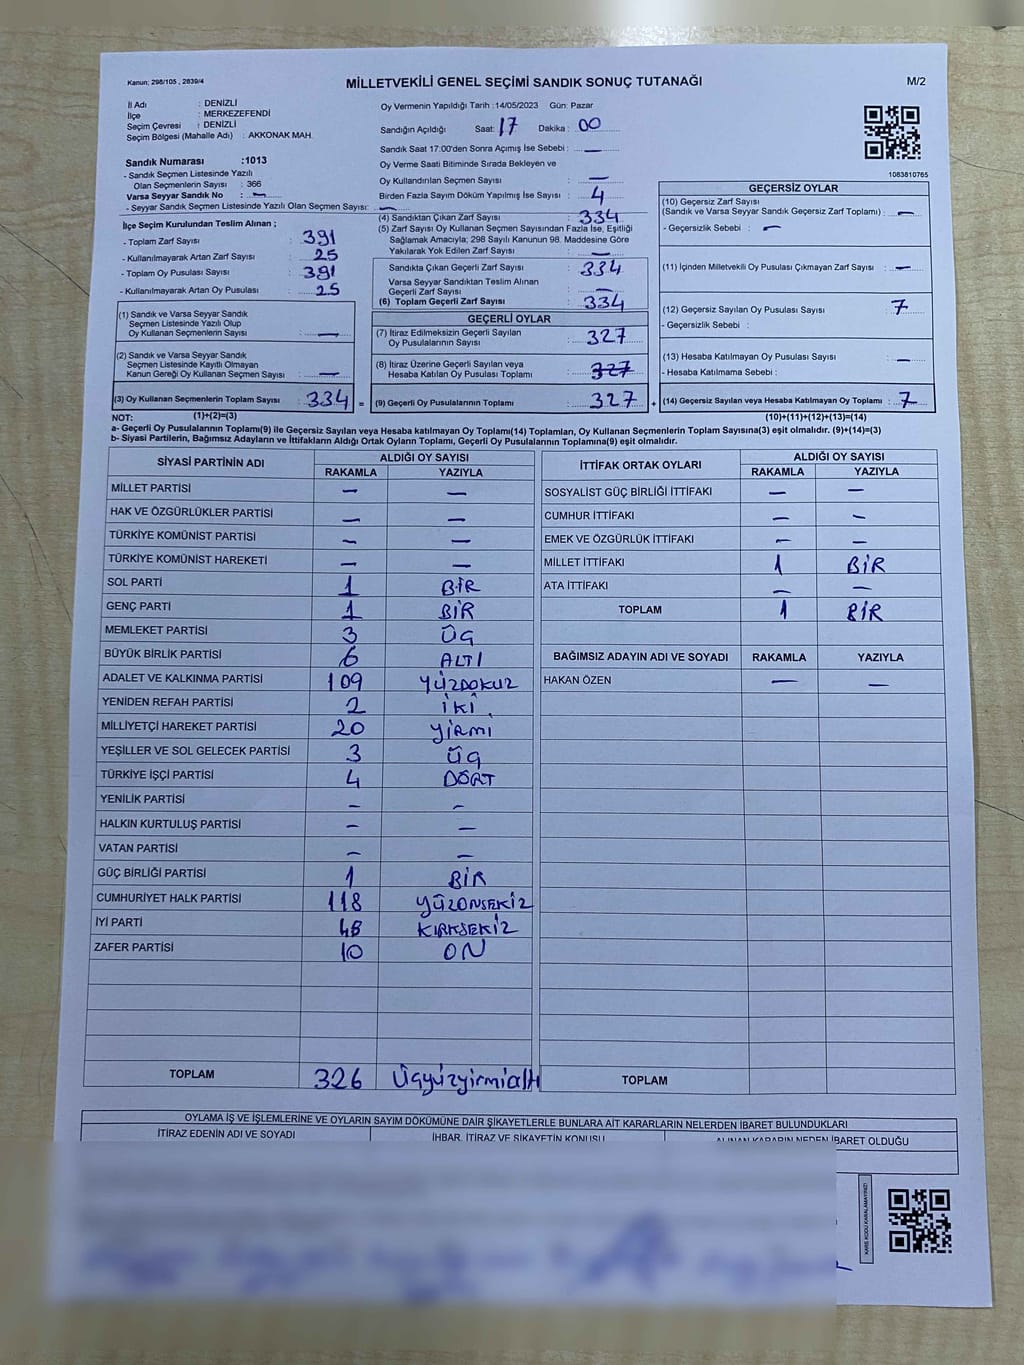 Kanun; 298/105 , 2839/4
MİLLETVEKİLİ GENEL SEÇİMİ SANDIK SONUÇ TUTANAĞI
M/2
İl Adı : DENİZLİ
İlçe : MERKEZEFENDİ
Seçim Çevresi : DENİZLİ
Seçim Bölgesi (Mahalle Adı) : AKKONAK MAH.
Sandık Numarası :1013
- Sandık Seçmen Listesinde Yazılı
Olan Seçmenlerin Sayısı : 366
Varsa Seyyar Sandık No : —
- Seyyar Sandık Seçmen Listesinde Yazılı Olan Seçmen Sayısı: —
İlçe Seçim Kurulundan Teslim Alınan ;
- Toplam Zarf Sayısı : 391
- Kullanılmayarak Artan Zarf Sayısı : 25
- Toplam Oy Pusulası Sayısı : 391
- Kullanılmayarak Artan Oy Pusulası : 25
(1) Sandık ve Varsa Seyyar Sandık
Seçmen Listesinde Yazılı Olup
Oy Kullanan Seçmenlerin Sayısı : —
(2) Sandık ve Varsa Seyyar Sandık
Seçmen Listesinde Kayıtlı Olmayan
Kanun Gereği Oy Kullanan Seçmen Sayısı : —
(3) Oy Kullanan Seçmenlerin Toplam Sayısı : 334 =
Oy Vermenin Yapıldığı Tarih :14/05/2023 Gün: Pazar
Sandığın Açıldığı Saat: 17 Dakika : 00
Sandık Saat 17:00'den Sonra Açımış İse Sebebi : —
Oy Verme Saati Bitiminde Sırada Bekleyen ve
Oy Kullandırılan Seçmen Sayısı : —
Birden Fazla Sayım Döküm Yapılmış İse Sayısı : 4
(4) Sandıktan Çıkan Zarf Sayısı : 334
(5) Zarf Sayısı Oy Kullanan Seçmen Sayısından Fazla İse, Eşitliği
Sağlamak Amacıyla; 298 Sayılı Kanunun 98. Maddesine Göre
Yakılarak Yok Edilen Zarf Sayısı : —
Sandıkta Çıkan Geçerli Zarf Sayısı : 334
Varsa Seyyar Sandıktan Teslim Alınan
Geçerli Zarf Sayısı : —
(6) Toplam Geçerli Zarf Sayısı : 334
GEÇERLİ OYLAR
(7) İtiraz Edilmeksizin Geçerli Sayılan
Oy Pusulalarının Sayısı : 327
(8) İtiraz Üzerine Geçerli Sayılan veya
Hesaba Katılan Oy Pusulası Toplamı : 327
(9) Geçerli Oy Pusulalarının Toplamı : 327 +
1083810765
GEÇERSİZ OYLAR
(10) Geçersiz Zarf Sayısı
(Sandık ve Varsa Seyyar Sandık Geçersiz Zarf Toplamı) : —
- Geçersizlik Sebebi : —
(11) İçinden Milletvekili Oy Pusulası Çıkmayan Zarf Sayısı : —
(12) Geçersiz Sayılan Oy Pusulası Sayısı : 7
- Geçersizlik Sebebi :
(13) Hesaba Katılmayan Oy Pusulası Sayısı : —
- Hesaba Katılmama Sebebi :
(14) Geçersiz Sayılan veya Hesaba Katılmayan Oy Toplamı : 7
NOT: (1)+(2)=(3) (10)+(11)+(12)+(13)=(14)
a- Geçerli Oy Pusulalarının Toplamı(9) ile Geçersiz Sayılan veya Hesaba katılmayan Oy Toplamı(14) Toplamları, Oy Kullanan Seçmenlerin Toplam Sayısına(3) eşit olmalıdır. (9)+(14)=(3)
b- Siyasi Partilerin, Bağımsız Adayların ve İttifakların Aldığı Ortak Oyların Toplamı, Geçerli Oy Pusulalarının Toplamına(9) eşit olmalıdır.
SİYASİ PARTİNİN ADI ALDIĞI OY SAYISI
RAKAMLA YAZIYLA
MİLLET PARTİSİ — —
HAK VE ÖZGÜRLÜKLER PARTİSİ — —
TÜRKİYE KOMÜNİST PARTİSİ — —
TÜRKİYE KOMÜNİST HAREKETİ — —
SOL PARTİ 1 BİR
GENÇ PARTİ 1 BİR
MEMLEKET PARTİSİ 3 ÜÇ
BÜYÜK BİRLİK PARTİSİ 6 ALTI
ADALET VE KALKINMA PARTİSİ 109 YÜZDOKUZ
YENİDEN REFAH PARTİSİ 2 İKİ
MİLLİYETÇİ HAREKET PARTİSİ 20 YİRMİ
YEŞİLLER VE SOL GELECEK PARTİSİ 3 ÜÇ
TÜRKİYE İŞÇİ PARTİSİ 4 DÖRT
YENİLİK PARTİSİ — —
HALKIN KURTULUŞ PARTİSİ — —
VATAN PARTİSİ — —
GÜÇ BİRLİĞİ PARTİSİ 1 BİR
CUMHURİYET HALK PARTİSİ 118 YÜZONSEKİZ
İYİ PARTİ 48 KIRKSEKİZ
ZAFER PARTİSİ 10 ON
TOPLAM 326 Üçyüzyirmialtı
İTTİFAK ORTAK OYLARI ALDIĞI OY SAYISI
RAKAMLA YAZIYLA
SOSYALİST GÜÇ BİRLİĞİ İTTİFAKI — —
CUMHUR İTTİFAKI — —
EMEK VE ÖZGÜRLÜK İTTİFAKI — —
MİLLET İTTİFAKI 1 BİR
ATA İTTİFAKI — —
TOPLAM 1 BİR
BAĞIMSIZ ADAYIN ADI VE SOYADI RAKAMLA YAZIYLA
HAKAN ÖZEN — —
TOPLAM
OYLAMA İŞ VE İŞLEMLERİNE VE OYLARIN SAYIM DÖKÜMÜNE DAİR ŞİKAYETLERLE BUNLARA AİT KARARLARIN NELERDEN İBARET BULUNDUKLARI
İTİRAZ EDENİN ADI VE SOYADI İHBAR, İTİRAZ VE ŞİKAYETİN KONUSU ALINAN KARARIN NEDEN İBARET OLDUĞU
KARE KODU KARALAMAYINIZ!